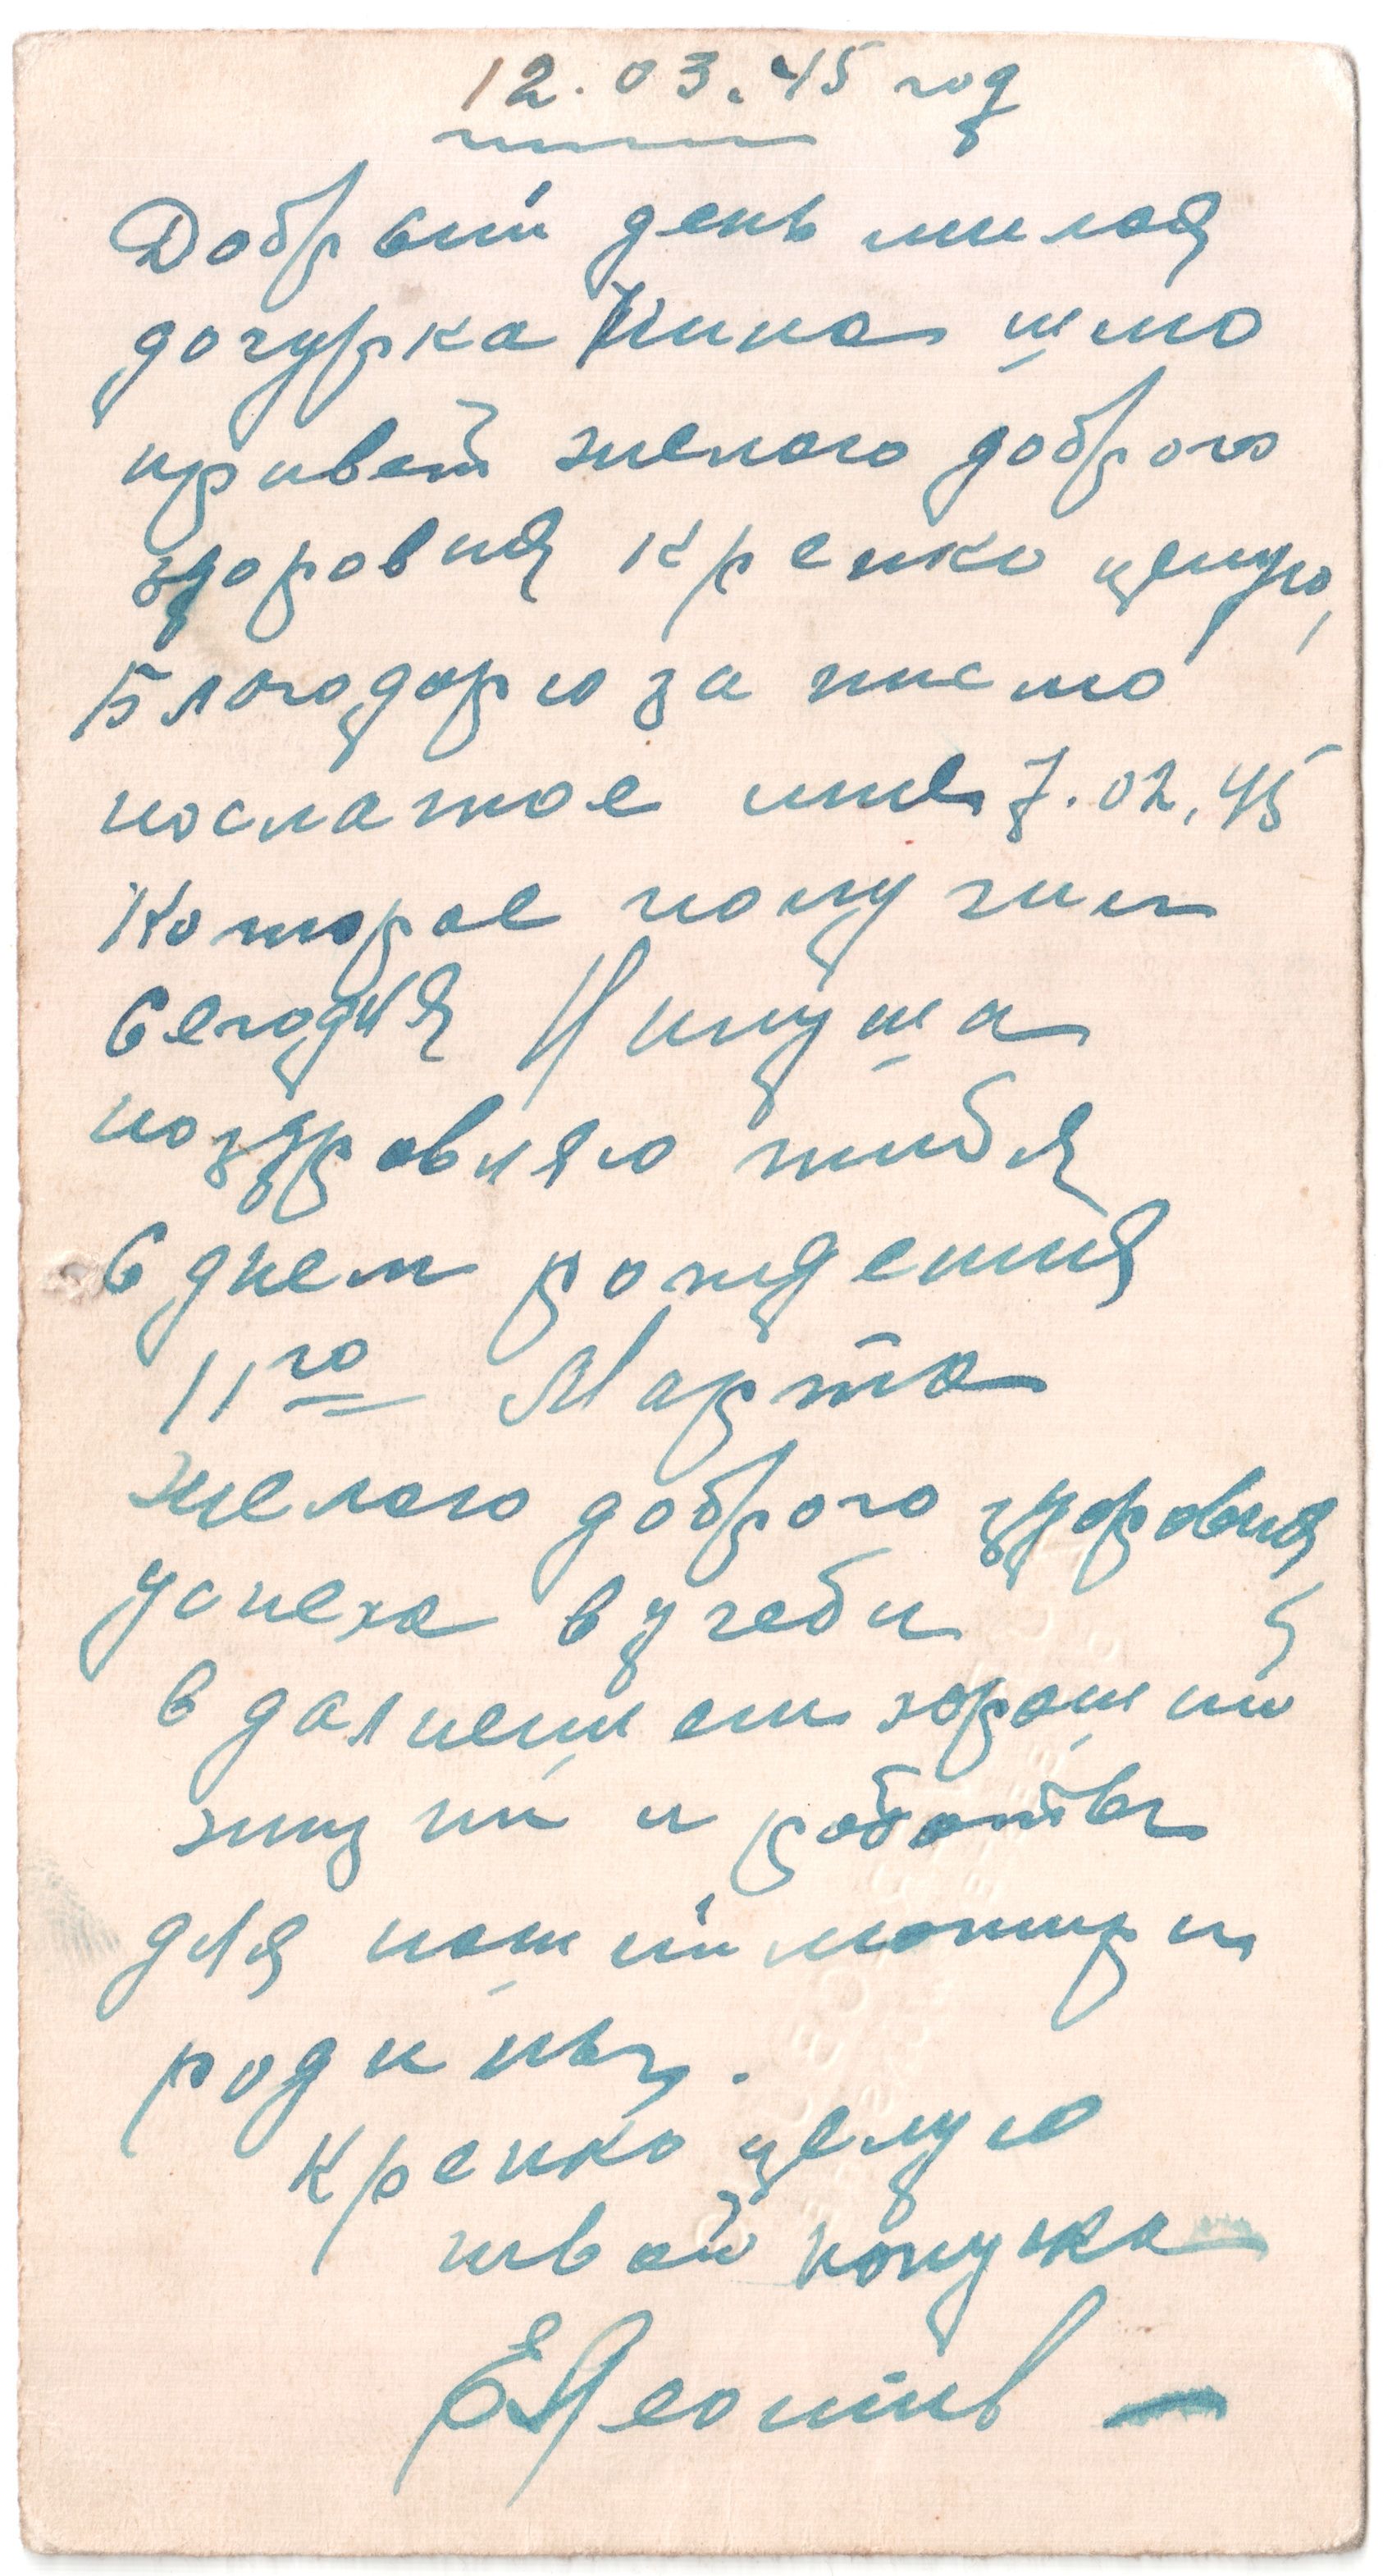 12.03.45 год
Добрый день милая
дочурка Нина шлю
привет желаю доброго
здоровия крепко целую,
Благодарю за писмо
послатое мне 7.02.45
Которое получил
Сегодня Нинуша
поздровляю тибя
С днем рождения
11го Марта
желаю доброго здоровия,
успеха в учеби
в далнешем хорошей
жизни и работы
для нашей матири
родины.
Крепко целую
твой папужка